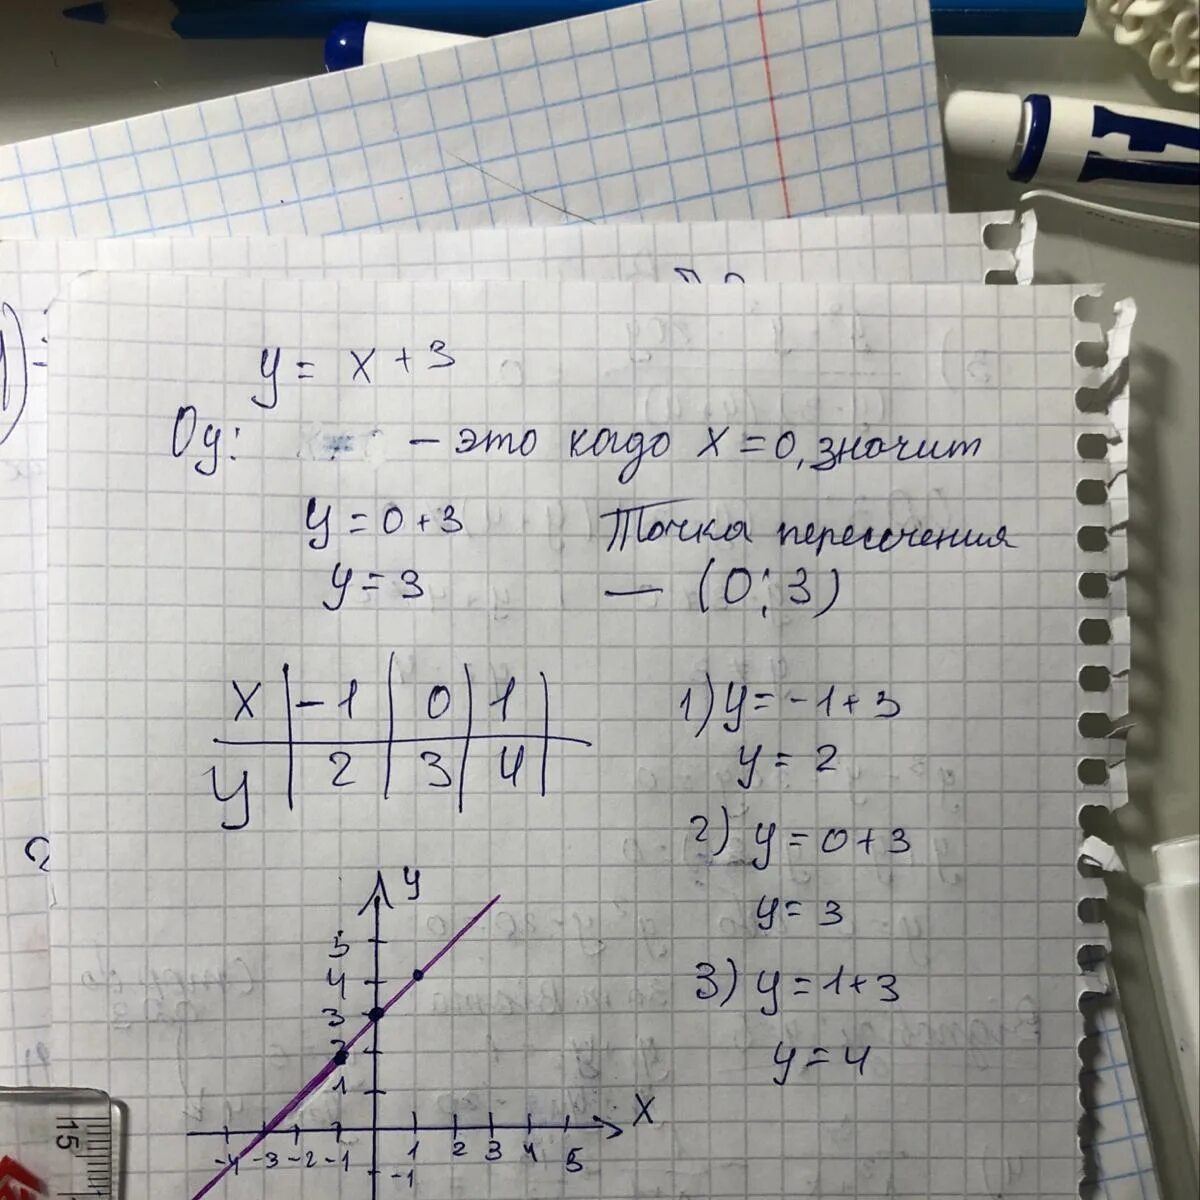 y = x + 3
Oy: – это кагдо x = 0, значит
y = 0 + 3
y = 3
Точка пересечения
— (0; 3)
x | -1 | 0 | 1 |
y | 2 | 3 | 4 |
1) y = -1 + 3
y = 2
2) y = 0 + 3
y = 3
3) y = 1 + 3
y = 4
y
5
4
3
2
1
x
-4 -3 -2 -1 1 2 3 4 5
-1
15